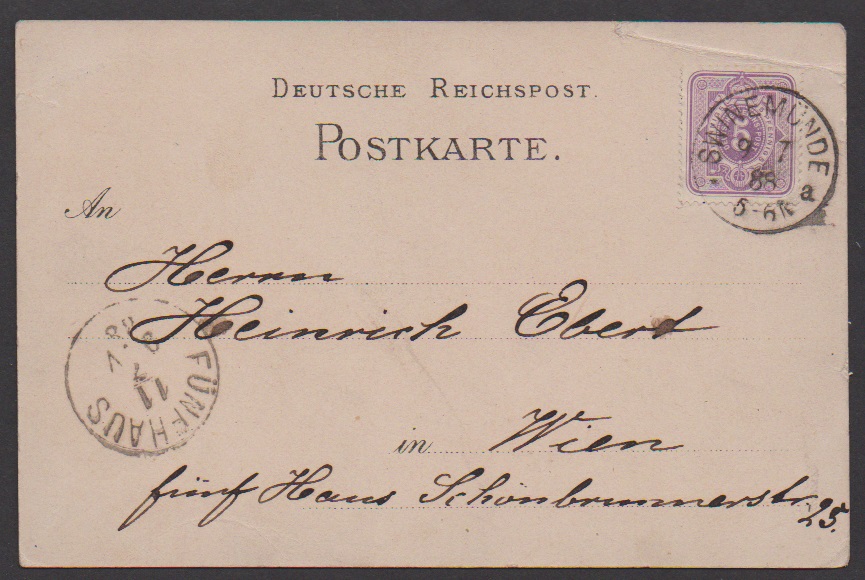 DEUTSCHE REICHSPOST.
POSTKARTE.
SWINEMÜNDE
9 7
88
5-6N
* a
5
An
Herrn
Heinrich Ebert
in Wien
fünf Haus Schönbrunnerstr.
25.
FÜNFHAUS
11
7
88